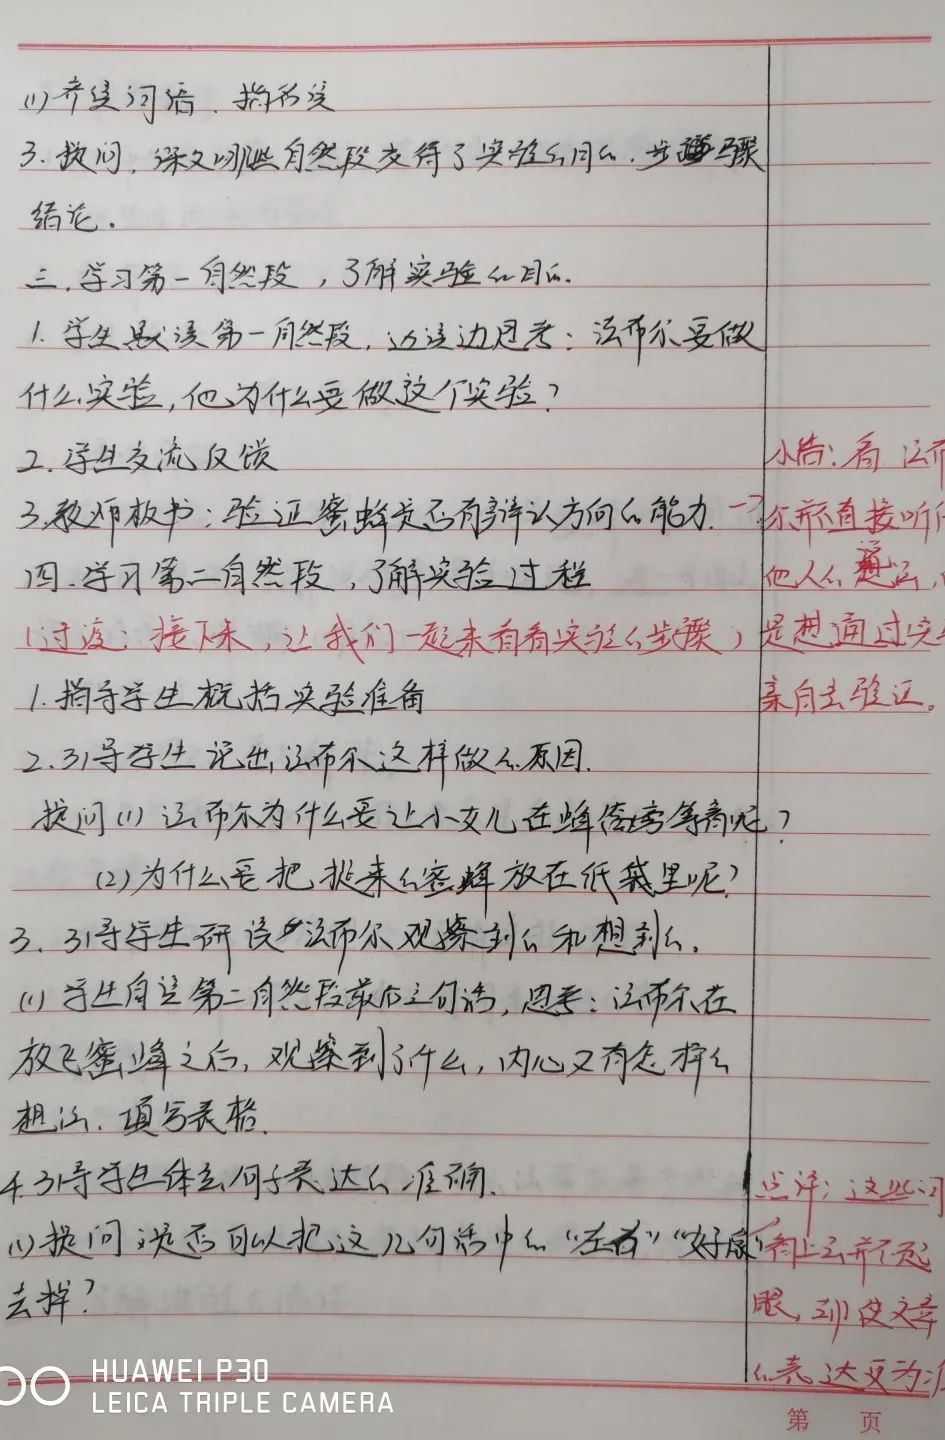 (1)齐读词语、指名读
3.提问,课文哪些自然段交待了实验的目的、步骤
结论。
三、学习第一自然段,了解实验的目的.
1.学生默读第一自然段,边读边思考:法布尔要做
什么实验,他为什么要做这个实验?
2.学生交流反馈
3.教师板书:验证蜜蜂是否有辩认方向的能力.
四.学习第二自然段,了解实验过程
(过渡:接下来,让我们一起来看看实验的步骤)
1.指导学生概括实验准备
2.引导学生说出法布尔这样做的原因.
提问(1)法布尔为什么要让小女儿在蜂窝旁等着呢?
(2)为什么要把捉来的蜜蜂放在纸袋里呢?
3.引导学生研读法布尔观察到的和想到的.
(1)学生自读第二自然段最后三句话,思考:法布尔在
放飞蜜蜂之后,观察到了什么,内心又有怎样的
想法.填写表格.
4.引导学生体会句子表达的准确.
(1)提问:是否可以把这几句话中的“左右”“好像”
去掉?
小结:看,法布
尔并不直接听
他人的说法,
是想通过实
亲自去验证。
点评:这些词
看上去并不起
眼,却使文章
的表达更为准
第 页
HUAWEI P30
LEICA TRIPLE CAMERA